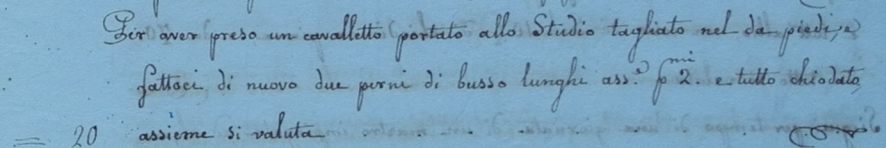 Per aver preso un cavalletto portato allo Studio tagliato nel da piedi, e
fattoci di nuovo due perni di busso lunghi ass.e p.mi 2. e tutto chiodato
= 20 assieme si valuta